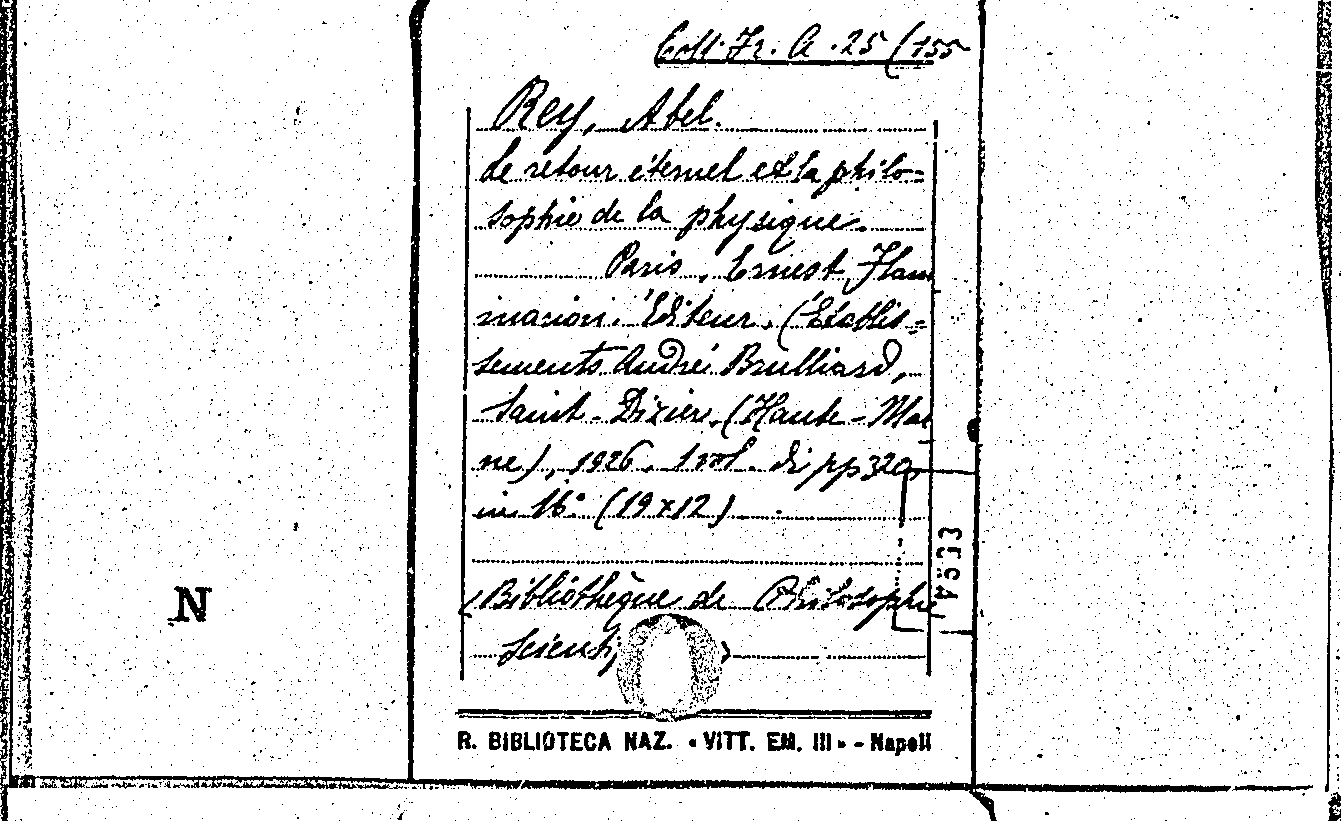 Coll. Fr. A. 25 (155
Rey, Abel.
Le retour éternel et la philo=
sophie de la physique.
Paris, Ernest Flam
marion. Éditeur. (Établis=
sements André Brulliard,
Saint-Dizier. (Haute-Mar
ne), 1926. 1 vol. di pp 320,
in 16° (19x12)
(Bibliothèque de Philosophie
Scienti )
N
R. BIBLIOTECA NAZ. « VITT. EM. III » - Napoli